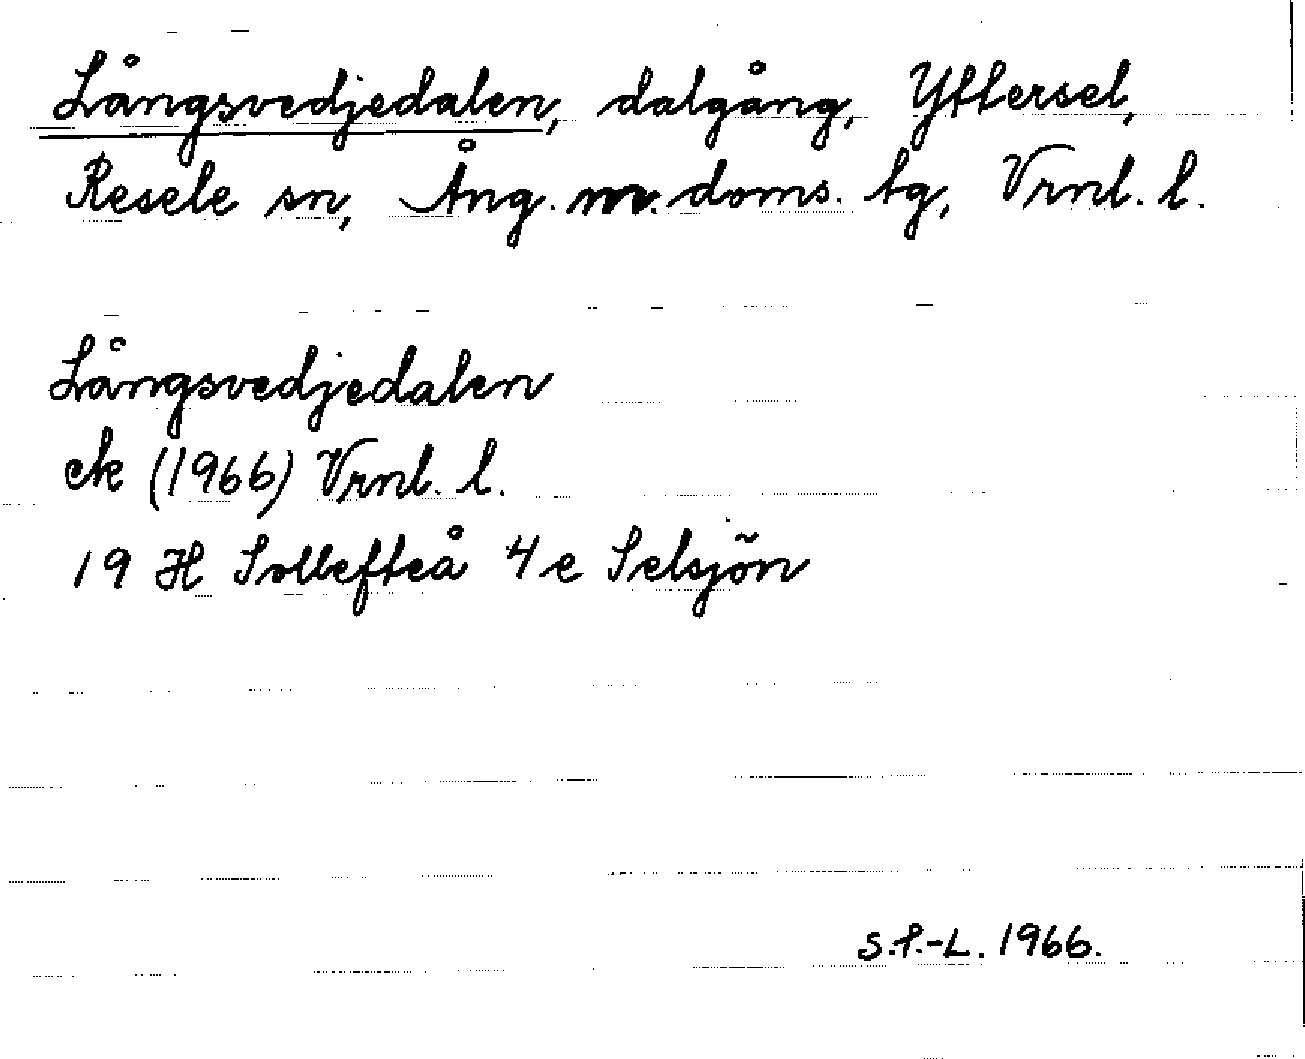 Långsvedjedalen, dalgång, Yttersel,
Resele sn, Ång. m. doms. tg, Vrnl. l.
Långsvedjedalen
ek (1966) Vrnl. l.
19 H Sollefteå 4 e Selsjön
S.P.-L. 1966.